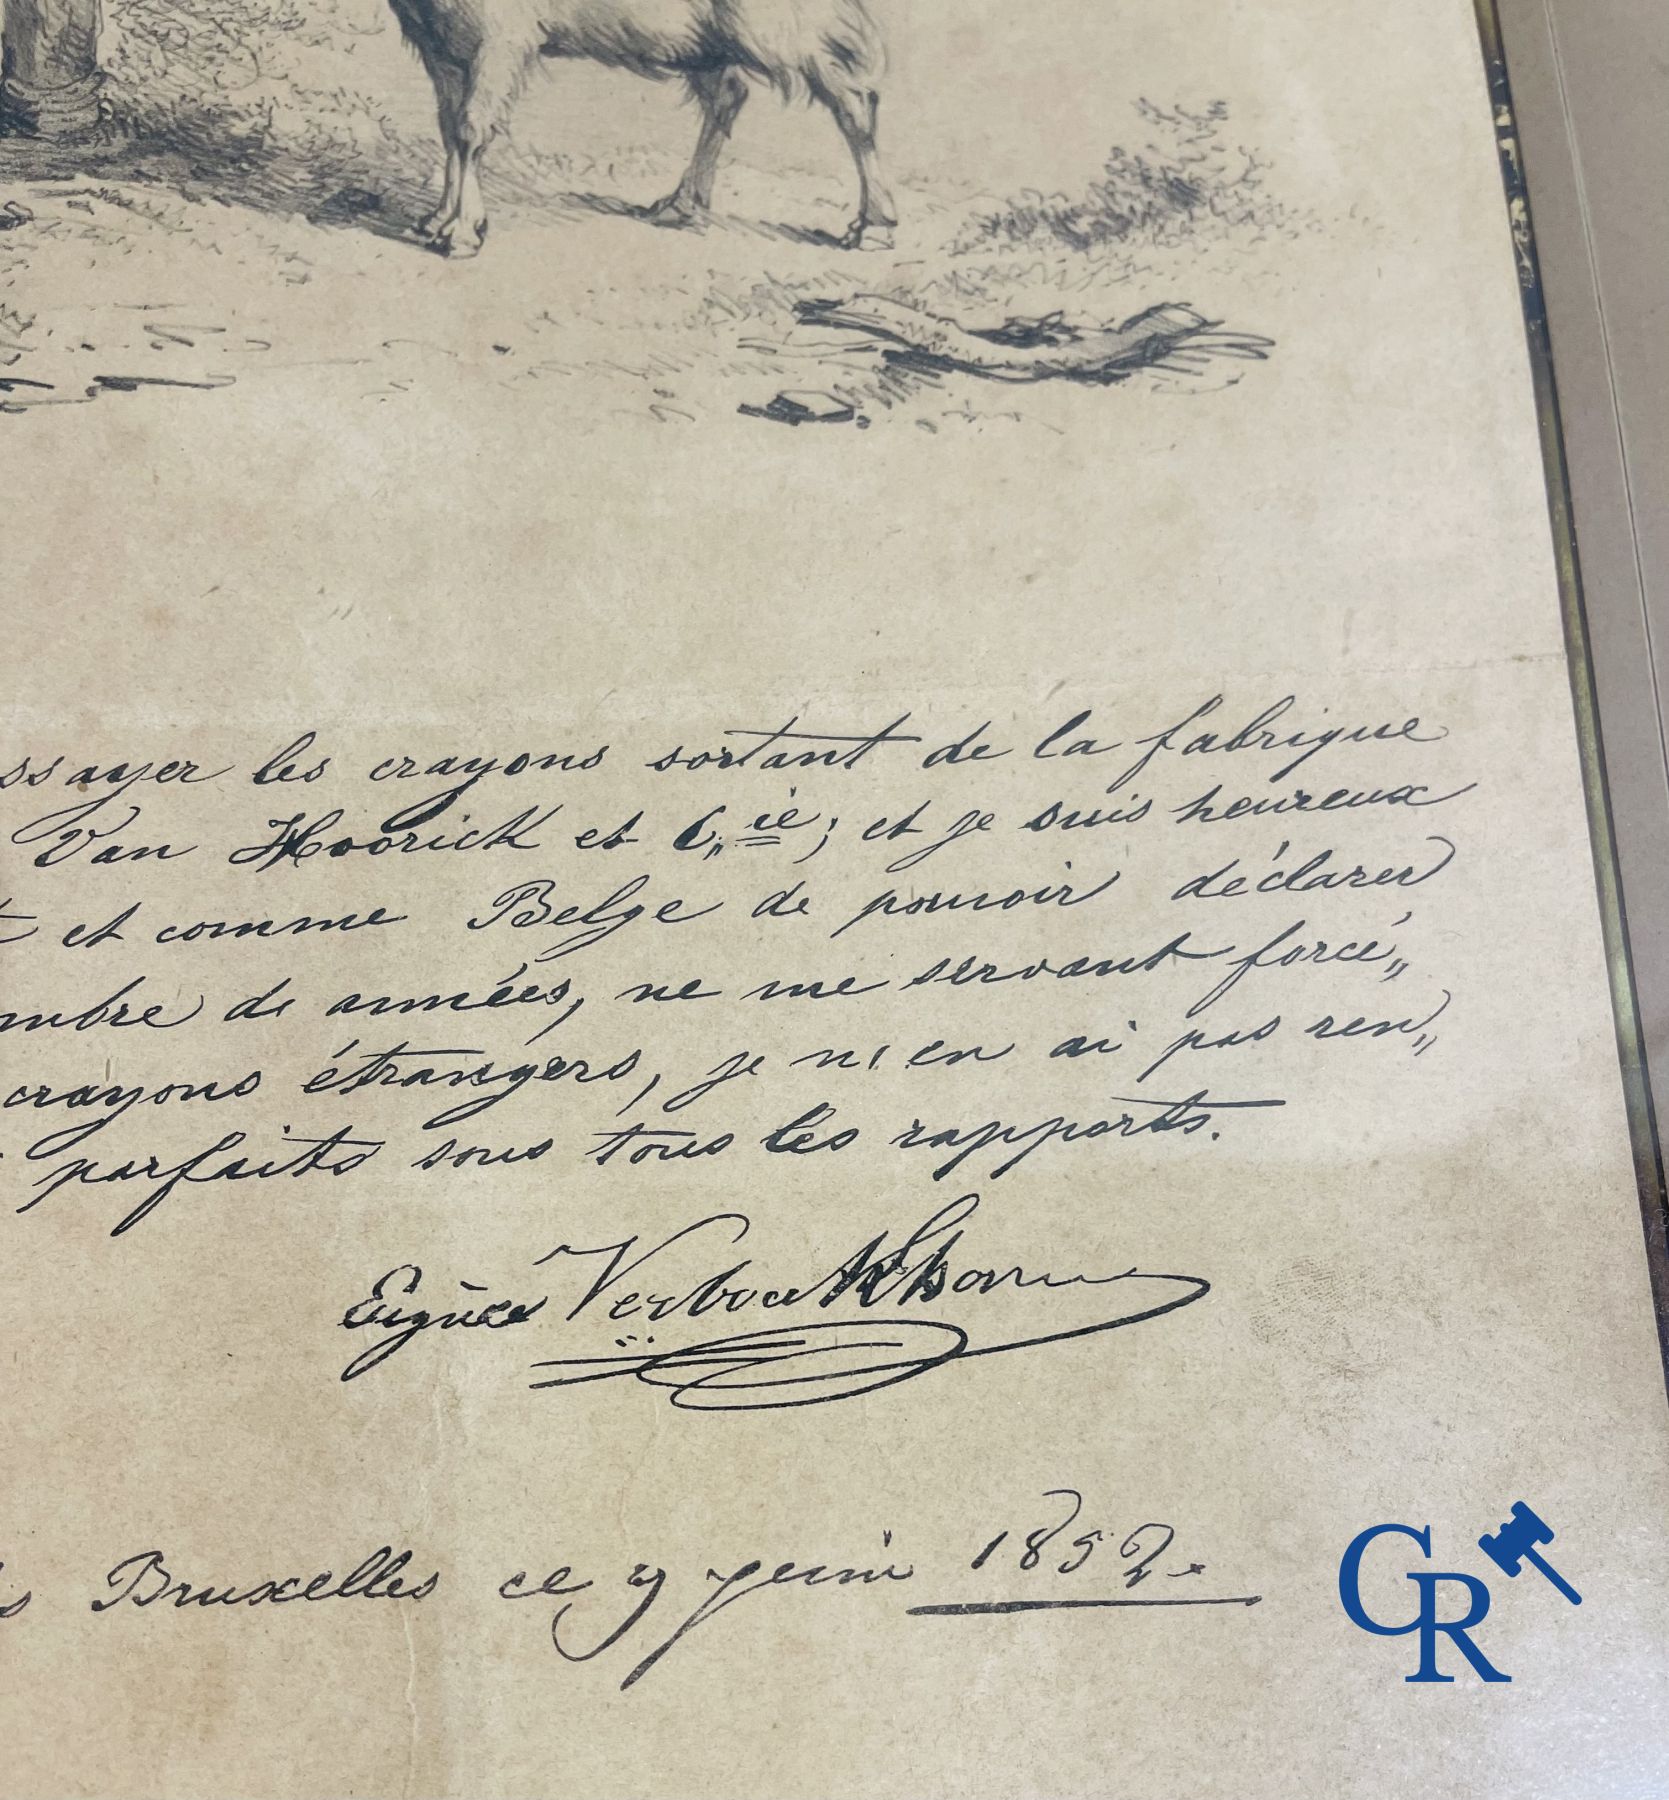 ssayer les crayons sortant de la fabrique
Van Hoorick et C,, ie; et je suis heureux
et comme Belge de pouvoir déclarer
mbre de années, ne me servant forcé,,
crayons étrangers, je n'en ai pas ren,,
parfaits sous tous les rapports.
Eugène Verboeckhoven
s Bruxelles ce 9 juin 1852.
GR